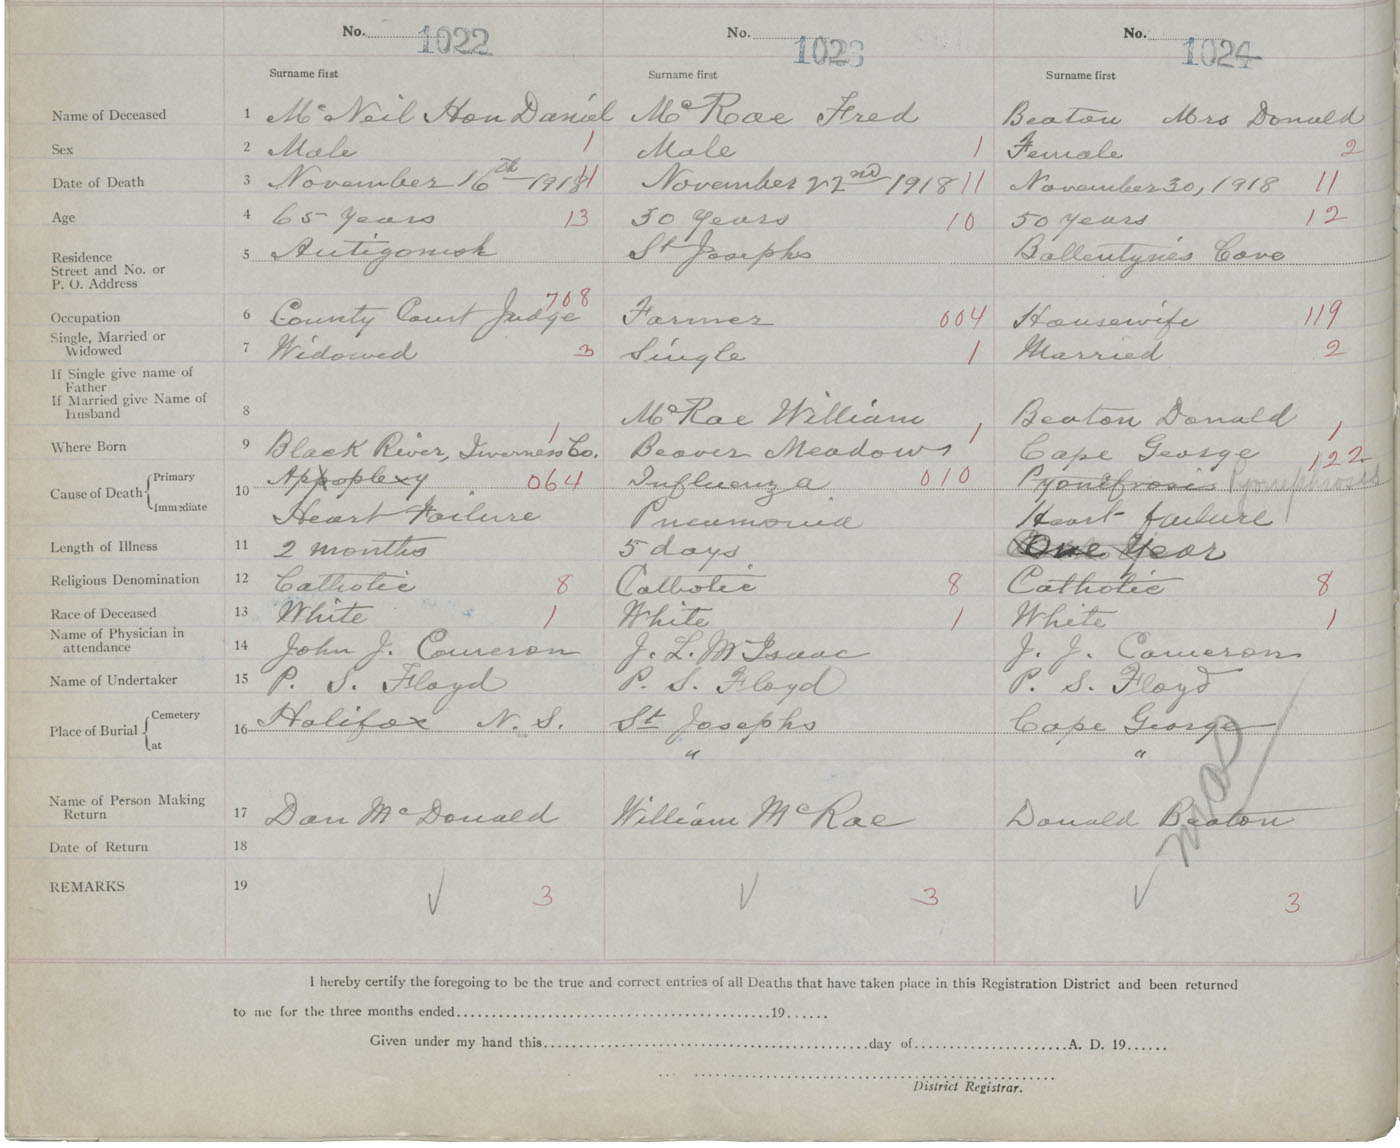 No. 1022 No. 1023 No. 1024
Surname first Surname first Surname first
Name of Deceased 1 McNeil Hon Daniel McRae Fred Beaton Mrs Donald
Sex 2 Male 1 Male 1 Female 2
Date of Death 3 November 16th 1918 11 November 22nd 1918 11 November 30, 1918 11
Age 4 65 Years 13 50 Years 10 50 Years 12
Residence
Street and No. or
P. O. Address
5 Antigonish St Josephs Ballentynes Cove
Occupation 6 County Court Judge 708 Farmer 004 Housewife 119
Single, Married or
Widowed
7 Widowed 3 Single 1 Married 2
If Single give name of
Father
If Married give Name of
Husband
8 McRae William Beaton Donald
Where Born 9 Black River, Inverness Co. 1 Beaver Meadows 1 Cape George 1
Cause of Death Primary 10 Appoplexy 064 Influenza 010 Pyonefrosis Pyonephrosis 122
Immediate Heart Failure Pneumonia Heart failure
Length of Illness 11 2 months 5 days One Year
Religious Denomination 12 Catholic 8 Catholic 8 Catholic 8
Race of Deceased 13 White 1 White 1 White 1
Name of Physician in
attendance
14 John J. Cameron J. L. McIsaac J. J. Cameron
Name of Undertaker 15 P. S. Floyd P. S. Floyd P. S. Floyd
Place of Burial Cemetery 16 Halifax N. S. St Josephs Cape George
at " "
Name of Person Making
Return
17 Dan McDonald William McRae Donald Beaton
Date of Return 18
REMARKS 19 √ 3 √ 3 √ 3
I hereby certify the foregoing to be the true and correct entries of all Deaths that have taken place in this Registration District and been returned
to me for the three months ended........19......
Given under my hand this........day of........A. D. 19......
District Registrar.